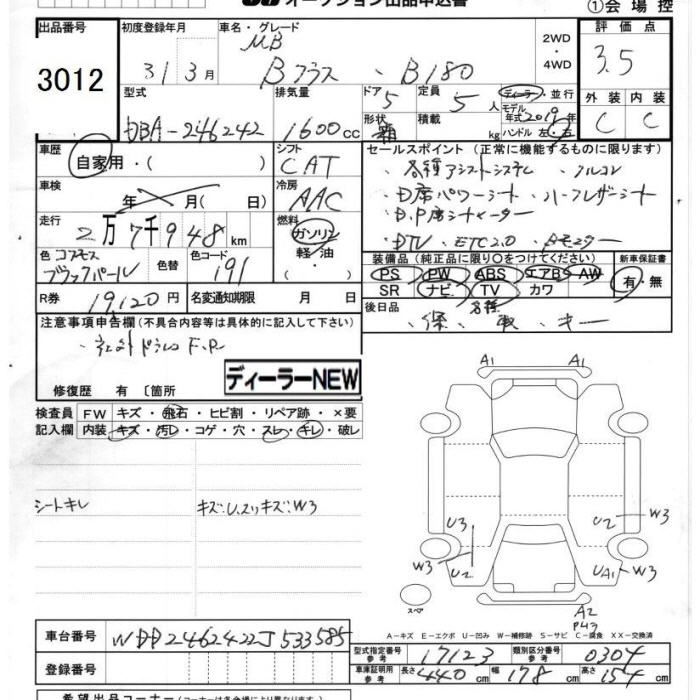 オークション出品申込書
①会場控
出品番号
3012
初度登録年月
31 3月
車名・グレード
MB
Bプラス、B180
2WD
・
4WD
評価点
3.5
外装 内装
C C
型式
DBA-246242
排気量
1600cc
ドア
5
形状
箱
定員
5人
積載
kg
ディーラー・並行
モデル
年式 2019年
ハンドル 左・右
車歴
自家用・( )
シフト
CAT
車検
年 月( 日)
冷房
AAC
走行
2万7千948km
燃料
ガソリン
軽油
( )
色 コスモス
ブラックパール
色替
色コード
191
R券 19,120円
名変通知期限 月 日
セールスポイント (正常に機能するものに限ります)
・各種アシストシステム ・クルコン
・D席パワーシート ・ハーフレザーシート
・D.P席シートヒーター
・DTV ・ETC2.0 ・Bモニター
装備品(純正品に限り○をつけてください)
PS PW ABS エアB AW
SR ナビ TV カワ
新車保証書
有・無
後日品 各種
・保 ・取 ・キー
注意事項申告欄(不具合内容等は具体的に記入して下さい)
・社外ドラレコ F.R
ディーラーNEW
修復歴 有 〔箇所
検査員 FW キズ・飛石・ヒビ割・リペア跡・×要
記入欄 内装 キズ・汚レ・コゲ・穴・スレ・キレ・破レ
シートキレ
キズ・U.スリキズ・W3
A1 A1
U3
U2
U2 W3
UA1 W3
スペア
A2
A-キズ E-エクボ U-凹み W-補修跡 S-サビ C-腐食 XX-交換済
車台番号 WDD2462422J533585
登録番号
型式指定番号
参考
17123
類別区分番号
参考
0304
車庫証明用
参考
長さ 440cm 幅 178cm 高さ 154cm
希望出品コーナー